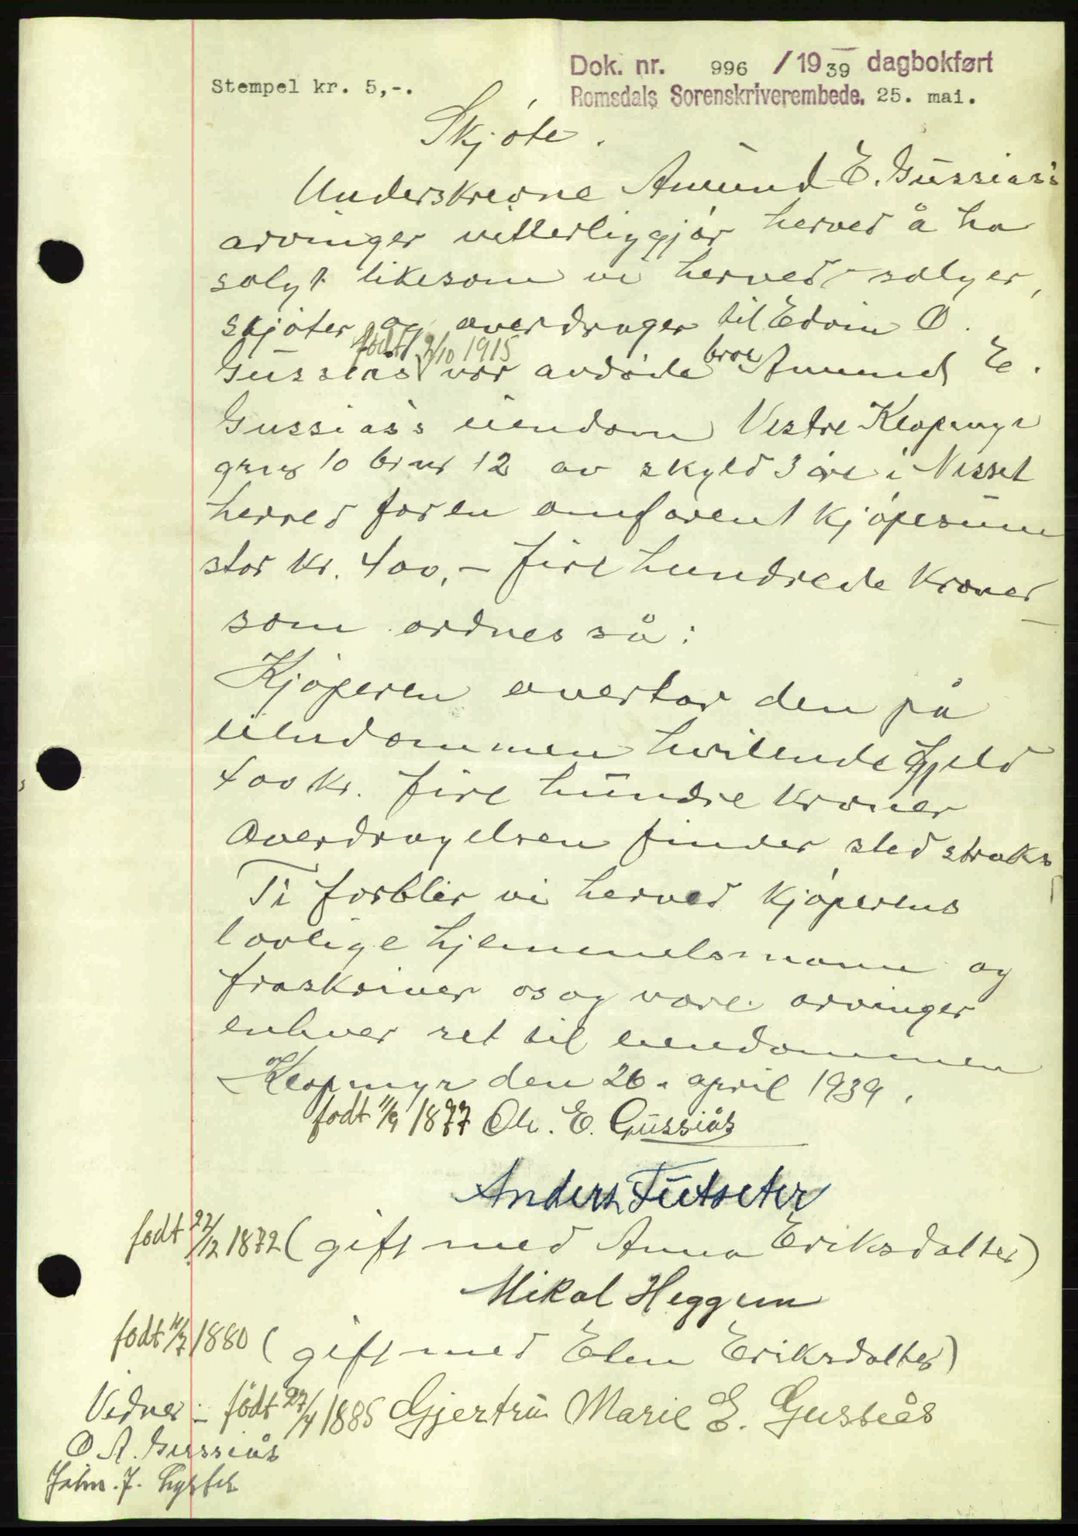 Dok. nr. 996 / 1939 dagbokført
Stempel kr. 5,-.
Romsdals Sorenskriverembede. 25. mai.
Skjøte.
Underskrevne Amund E. Gussias's
arvinger vitterliggjør herved å ha
solgt likesom vi herved sælger,
skjøter og overdrager til Edvin O.
født 9/10 1915
Gussiås vor avdøde bror Amund E.
Gussiås's eiendom Vestre Kleopmyr
gr nr 10 br nr 12 av skyld 3 øre i Nesset
herred for en omforent kjøpesum
stor kr. 400,- fire hundrede kroner
som ordnes så:
Kjøperen overtar den på
eiendommen hvilende gjeld
400 kr. fire hundre kroner
Overdragelsen finder sted straks
Ti forblir vi herved kjøperens
lovlige hjemmelsmann og
fraskriver os og våre arvinger
enhver ret til eiendommen
Kleopmyr den 26. april 1939.
født 11/9 1877 Ole. E. Gussiås
Anders Tietseter
født 22/12 1872 (gift med Anna Eriksdatter)
Mikal Heggem
født 11/7 1880 (gift med Elen Eriksdatter)
Vidner:- født 27/4 1885 Gjertru Marie E. Gussiås
O A. Gussiås